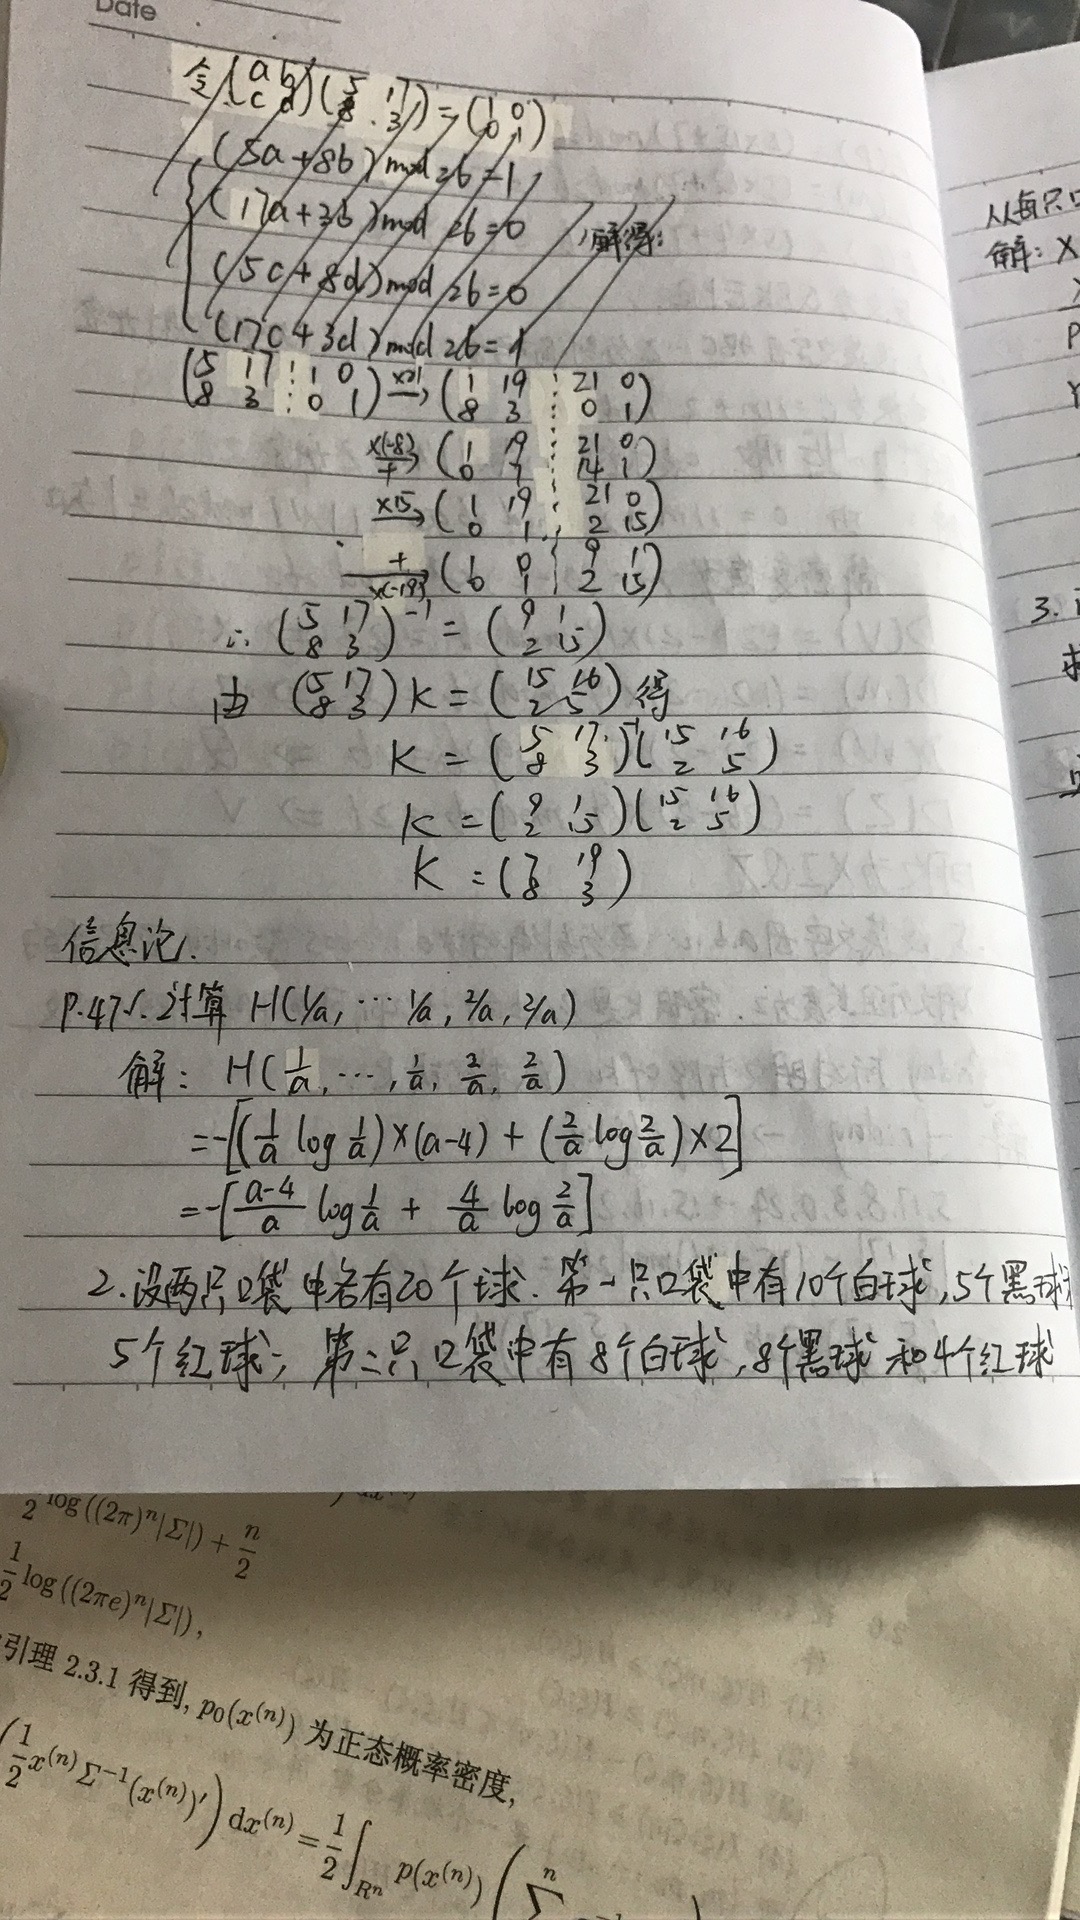 Date
令(a b; c d)(5 17; 8 3)=(1 0; 0 1)
(5a+8b)mod 26=1
(17a+3b)mod 26=0 解得:
(5c+8d)mod 26=0
(17c+3d)mod 26=1
(5 17 ⋮ 1 0; 8 3 ⋮ 0 1) ×21→ (1 19 ⋮ 21 0; 8 3 ⋮ 0 1)
×(-8)+→ (1 19 ⋮ 21 0; 0 7 ⋮ 14 1)
×15→ (1 19 ⋮ 21 0; 0 1 ⋮ 2 15)
+×(-19)→ (1 0 ⋮ 9 1; 0 1 ⋮ 2 15)
∴ (5 17; 8 3)⁻¹ = (9 1; 2 15)
由 (5 17; 8 3)K = (15 16; 2 5) 得
K = (5 17; 8 3)⁻¹(15 16; 2 5)
K = (9 1; 2 15)(15 16; 2 5)
K = (7 19; 8 3)
信息论.
P.47 1.计算 H(1/a, ⋯ 1/a, 2/a, 2/a)
解: H(1/a, ⋯, 1/a, 2/a, 2/a)
=-[(1/a log 1/a)×(a-4) + (2/a log 2/a)×2]
=-[(a-4)/a log 1/a + 4/a log 2/a]
2.设两只口袋中各有20个球.第一只口袋中有10个白球,5个黑球
5个红球; 第二只口袋中有8个白球,8个黑球和4个红球
从每只口
解: X
P
Y
3.
2 log((2π)ⁿ|Σ|) + n/2
1/2 log((2πe)ⁿ|Σ|),
引理 2.3.1 得到, p₀(x⁽ⁿ⁾) 为正态概率密度,
(1/2 x⁽ⁿ⁾Σ⁻¹(x⁽ⁿ⁾)′) dx⁽ⁿ⁾ = 1/2 ∫_Rⁿ p(x⁽ⁿ⁾) (∑ n